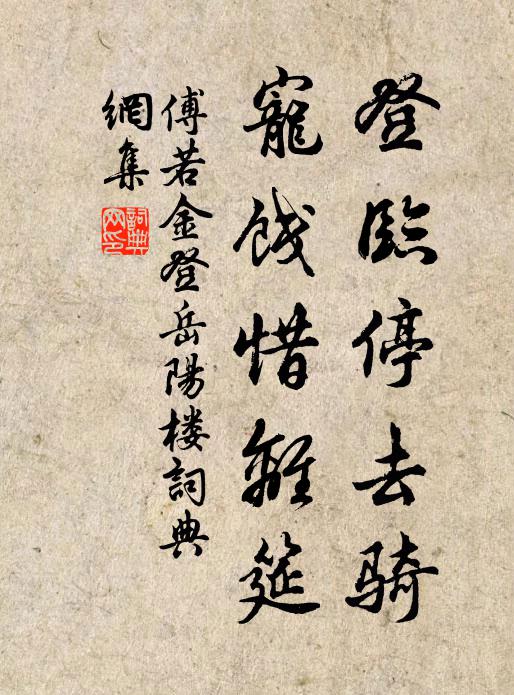 登臨停去騎
寵餞惜離筵
傅若金登岳陽楼詞典
網集
詞典
网印